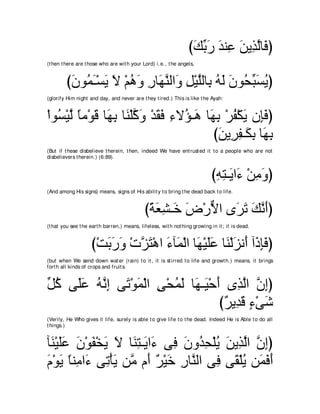 (فَالَّذِينَ عِندَ رَبِّكَ)
(then there are those who are with your Lord) i.e., the angels,
(يُسَبِّحُونَ لَهُ بِالَّيْلِ وَالنَّهَارِ وَهُمْ لاَ يَسْـَمُونَ)
(glorify Him night and day, and never are they tired.) This is like the Ayah:
(فَإِن يَكْفُرْ بِهَا هَـؤُلاءِ فَقَدْ وَكَّلْنَا بِهَا قَوْماً لَّيْسُواْ
بِهَا بِكَـفِرِينَ)
(But if these disbelieve therein, then, indeed We have entrusted it to a people who are not
disbelievers therein.) (6:89).
(وَمِنْ ءَايَـتِهِ)
(And among His signs) means, signs of His ability to bring the dead back to life.
(أَنَّكَ تَرَى الاٌّرْضَ خَـشِعَةً)
(that you see the earth barren,) means, lifeless, with nothing growing in it; it is dead.
(فَإِذَآ أَنزَلْنَا عَلَيْهَا الْمَآءَ اهْتَزَّتْ وَرَبَتْ)
(but when We send down water (rain) to it, it is stirred to life and growth.) means, it brings
forth all kinds of crops and fruits.
(إِنَّ الَّذِى أَحْيَـهَا لَمُحْىِ الْمَوْتَى إِنَّهُ عَلَى كُلِّ
شَىْءٍ قَدِيرٌ)
(Verily, He Who gives it life, surely is able to give life to the dead. Indeed He is Able to do all
things.)
(إِنَّ الَّذِينَ يُلْحِدُونَ فِى ءَايَـتِنَا لاَ يَخْفَوْنَ عَلَيْنَآ
أَفَمَن يُلْقَى فِى النَّارِ خَيْرٌ أَم مَّن يَأْتِى ءَامِناً يَوْمَ